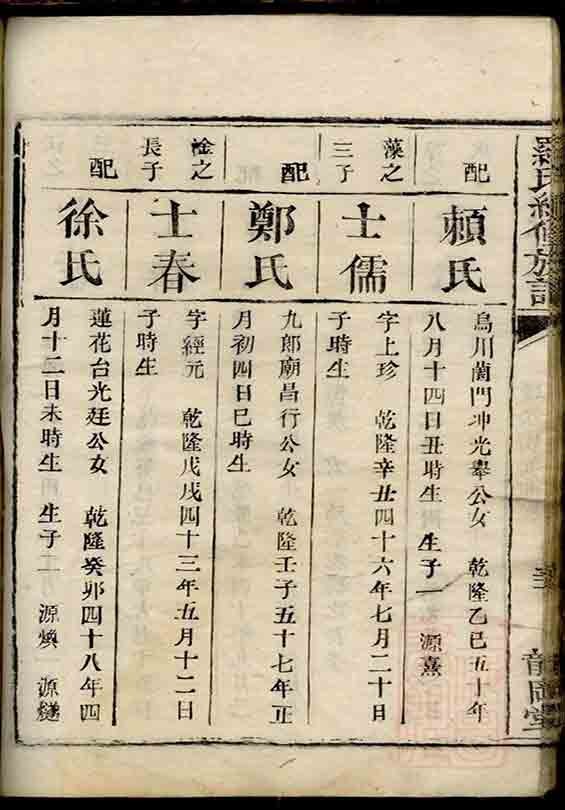 羅氏續修族譜
配
賴氏
烏川蘭門坤光舉公女 乾隆乙巳五十年
八月十四日丑時生 生子一 源熹
藻之
三子
士儒
字上珍 乾隆辛丑四十六年七月二十日
子時生
配
鄭氏
九郎廟昌行公女 乾隆壬子五十七年正
月初四日巳時生
淦之
長子
士春
字經元 乾隆戊戌四十三年五月十二日
子時生
配
徐氏
蓮花台光廷公女 乾隆癸卯四十八年四
月十二日未時生 生子二 源煥 源燧